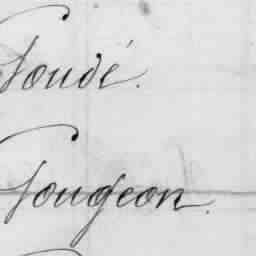 Foudé.
Fougeon.